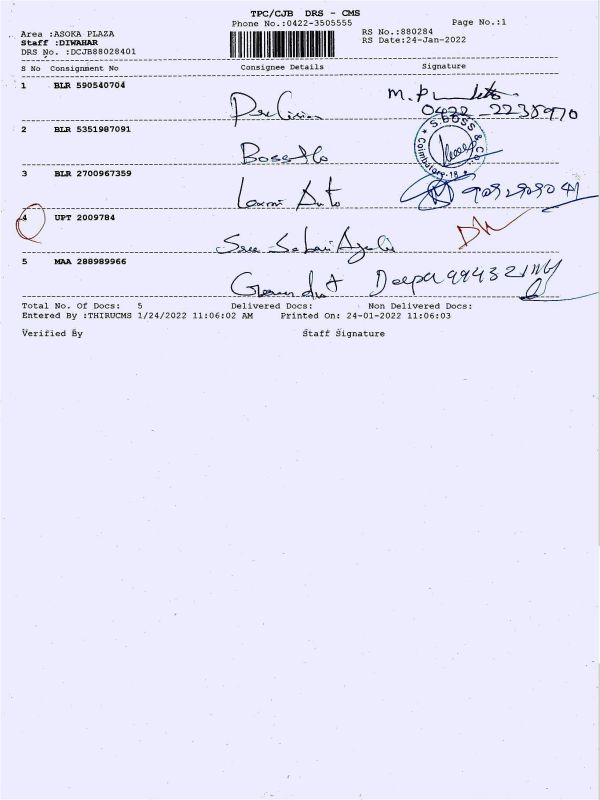 TPC/CJB DRS - CMS
Phone No.:0422-3505555
Page No.:1
Area :ASOKA PLAZA
RS No.:880284
Staff :DIWAHAR
RS Date:24-Jan-2022
DRS No. :DCJB88028401
S No Consignment No Consignee Details Signature
1 BLR 590540704
Precision M.P
0422 - 2238970
2 BLR 5351987091
S.BOSS & Co. Coimbatore-18
3 BLR 2700967359
Laxmi Auto
4 UPT 2009784
Sree
5 MAA 288989966
Deepa
Total No. Of Docs: 5 Delivered Docs: Non Delivered Docs:
Entered By :THIRUCMS 1/24/2022 11:06:02 AM Printed On: 24-01-2022 11:06:03
Verified By Staff Signature